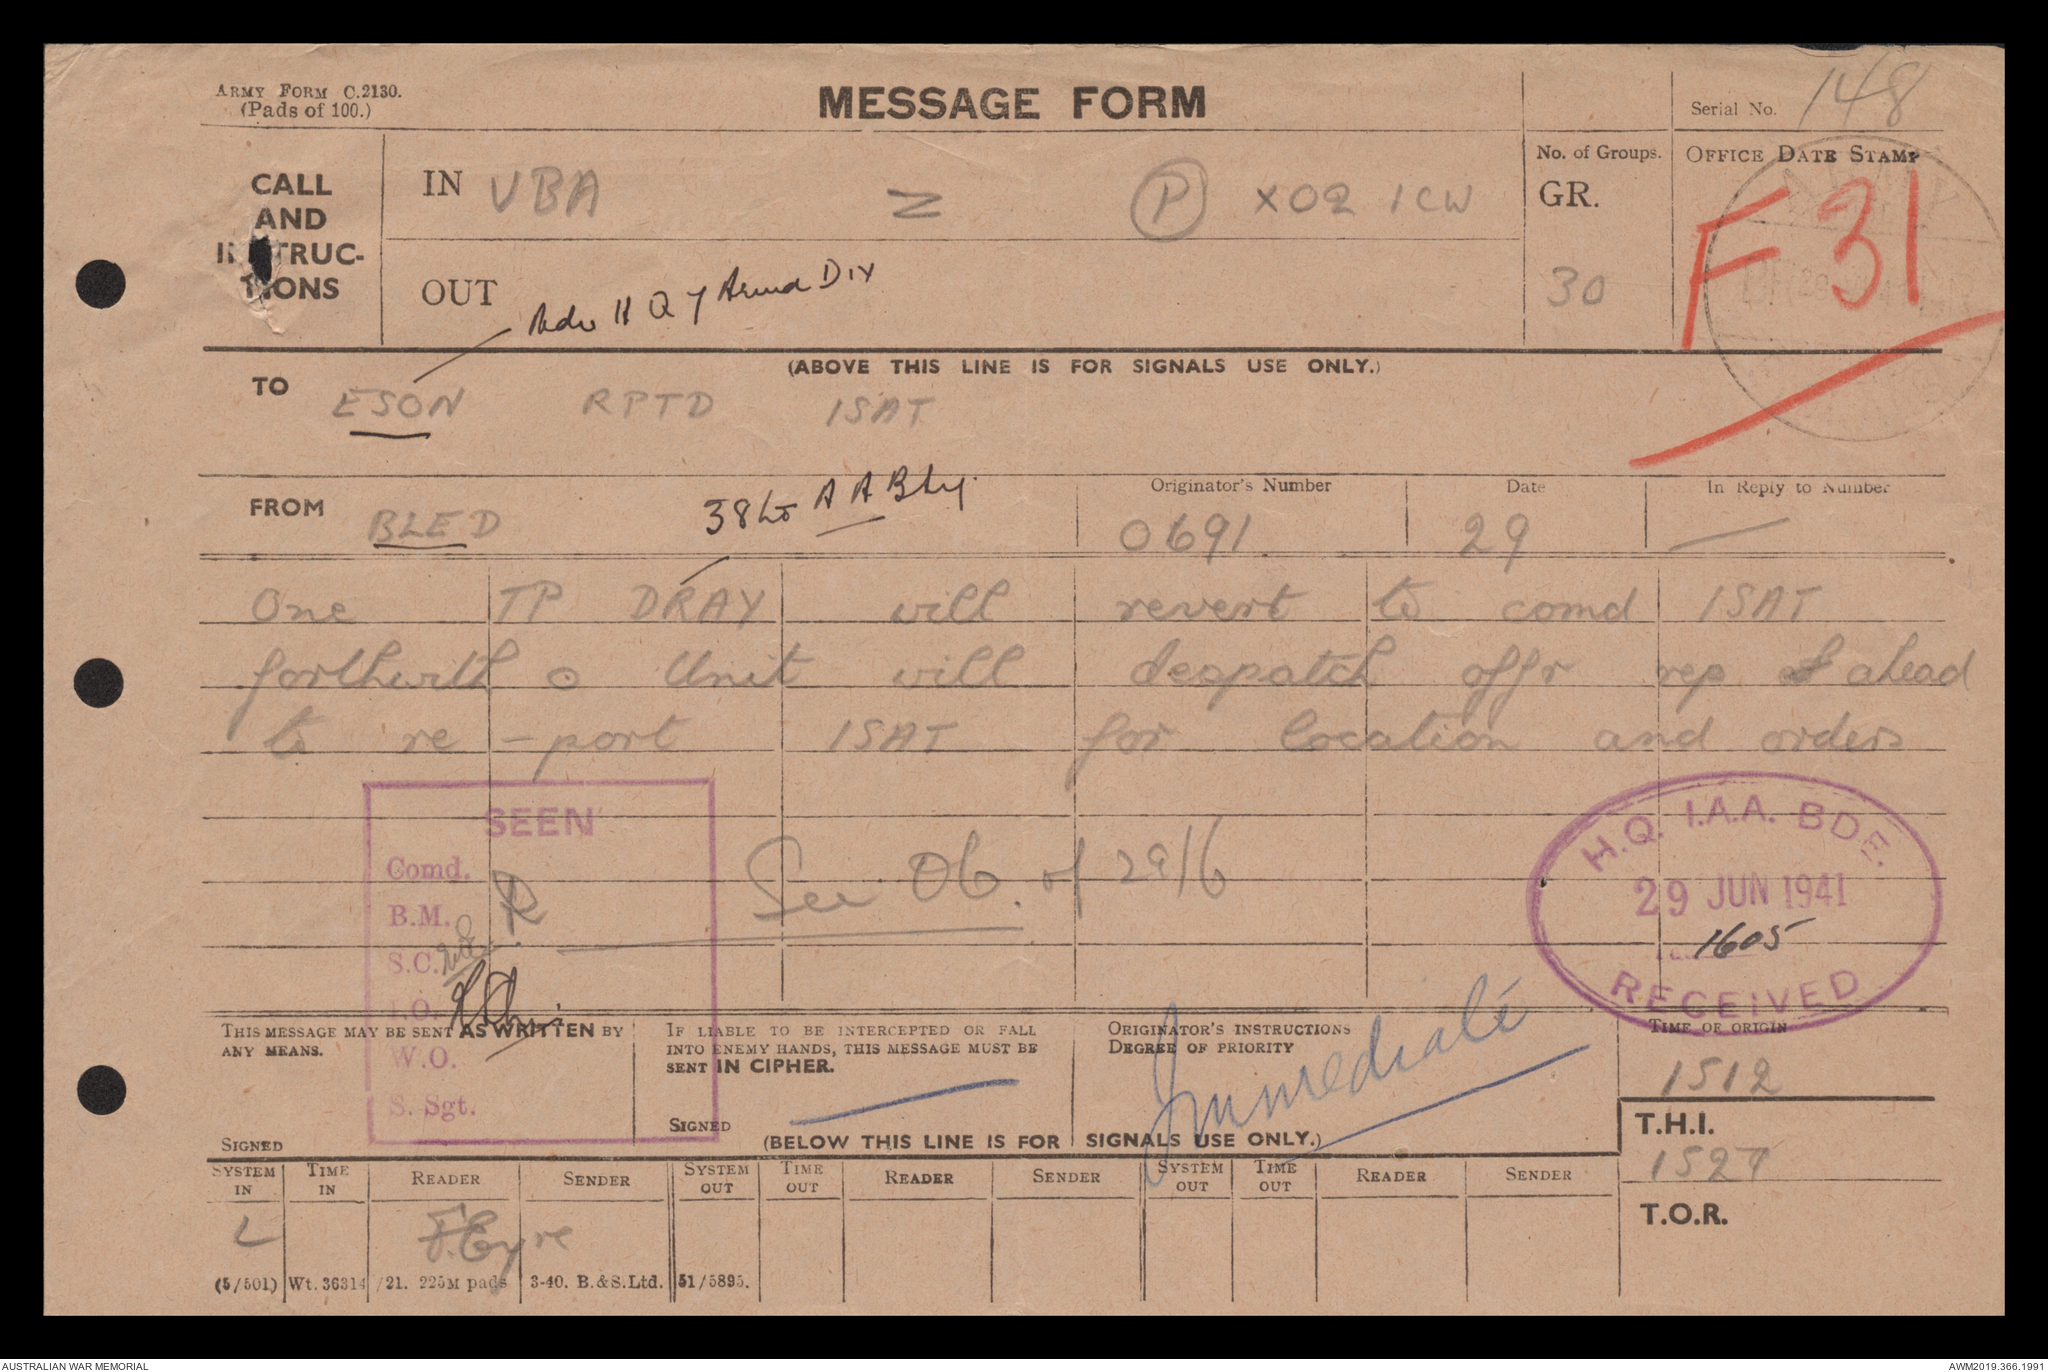 ARMY FORM C.2130.
(Pads of 100.)
MESSAGE FORM
Serial No. 148
CALL
AND
INSTRUC-
TIONS
IN VBA Z P X02 1CW
No. of Groups.
GR.
30
OFFICE DATE STAMP
F31
OUT Adv H Q 7 Armd Div
(ABOVE THIS LINE IS FOR SIGNALS USE ONLY.)
TO ESON RPTD ISAT
FROM BLED
38 Lt A A Bty.
Originator's Number
0691
Date
29
In Reply to Number
—
One TP DRAY will revert to comd ISAT
forthwith o Unit will despatch offr rep ahead
to re-port ISAT for location and orders
SEEN
Comd.
B.M.
S.C.
I.O.
W.O.
S. Sgt.
See 06. of 29/6
H.Q. I.A.A. BDE.
29 JUN 1941
1605
RECEIVED
THIS MESSAGE MAY BE SENT AS WRITTEN BY
ANY MEANS.
SIGNED
IF LIABLE TO BE INTERCEPTED OR FALL
INTO ENEMY HANDS, THIS MESSAGE MUST BE
SENT IN CIPHER.
SIGNED
ORIGINATOR'S INSTRUCTIONS
DEGREE OF PRIORITY
Immediate
TIME OF ORIGIN
1512
T.H.I.
1527
T.O.R.
(BELOW THIS LINE IS FOR SIGNALS USE ONLY.)
SYSTEM IN TIME IN READER SENDER SYSTEM OUT TIME OUT READER SENDER SYSTEM OUT TIME OUT READER SENDER
L F. Eyre
(5/501) Wt. 36314 /21. 225M pads 3-40. B.&S.Ltd. 51/5895.
AUSTRALIAN WAR MEMORIAL
AWM2019.366.1991